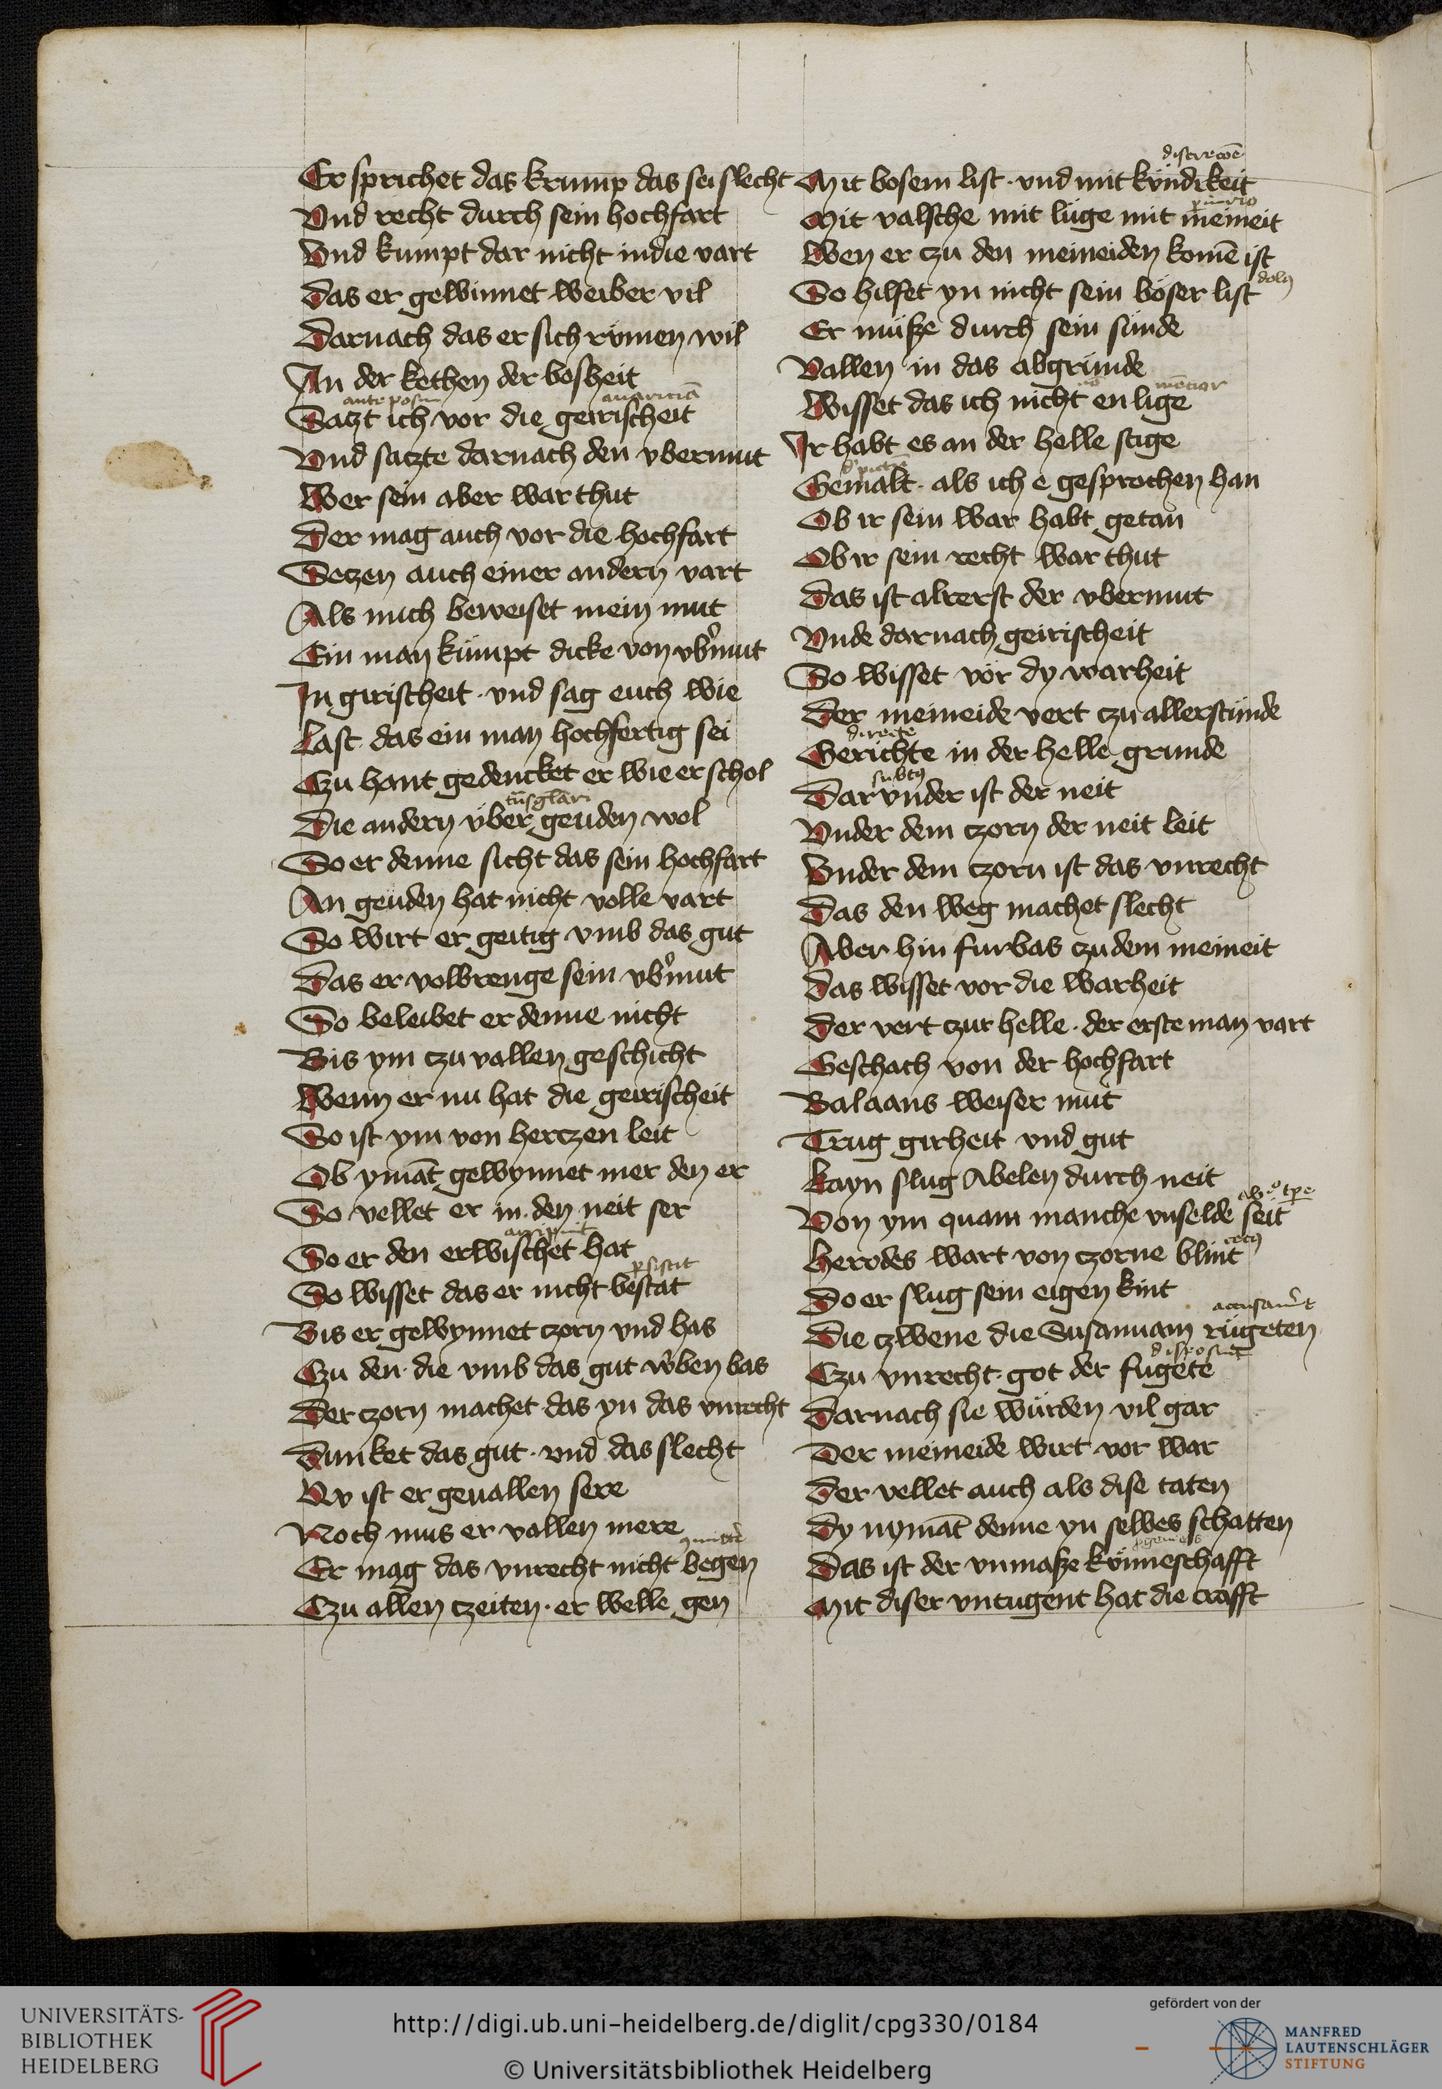 Er sprichet das krump das sei slecht
Vnd recht durch sein hochfart
Vnd kumpt dar nicht indie vart
Das er gewinnet weiber vil
Darnach das er sich rümen wil
An der kethen der bosheit
ante posui auariciā
Satzt ich vor die geirischeit
Vnd satzte darnach den vbermut
Wer sein aber war thut
Der mag auch vor die hochfart
Setzen auch einer andern vart
Als mich beweiset mein mut
Ein man kümpt dicke von vb'mut
In girischeit · vnd sag euch wie
Last das ein man hochfertig sei
Czu hant gedencket er wie er schol
Die andern über geuden wol
So er denne sicht das sein hochfart
An geüden hat nicht volle vart
So wirt er geitig vmb das gut
Das er volbrenge sein vb'mut
So beleibet er denne nicht
Bis ym czu vallen geschicht
Wenn er nu hat die geirischeit
So ist ym von herczen leit
Ob ymāt gewynnet mer den er
So vellet er in den neit ser
So er den erwischet hat
p̄sistit
So wisset das er nicht bestat
Bis er gewynnet czorn vnd has
Czu den die vmb das gut w'ben bas
Der czorn machet das yn das vnrecht
Dunket das gut · vnd das slecht
Nv ist er geuallen sere
Noch mus er vallen mere
Er mag das vnrecht nicht begen
Czu allen czeiten · er welle gen
Mit bosem list · vnd mit kündikeit
Mit valsche mit lüge mit meineit
Wen er czu den meineiden komē ist
dolus
So hilfet yn nicht sein böser list
Er müße durch sein sünde
Vallen in das abgründe
mētior
Wisset das ich nicht en lige
Ir habt es an der helle stige
Gemalt · als ich e gesprochen han
Ob ir sein war habt getan
Ob ir sein recht war thut
Das ist alrerst der vbermut
Vnde darnach geirischeit
So wisset vör dy warheit
Der meineide vert czu allerstunde
directe
Gerichte in der helle grunde
subtus
Darvnder ist der neit
Vnder dem czorn der neit leit
Vnder dem czorn ist das vnrecht
Das den weg machet slecht
Aber hin furbas czu dem meineit
Das wisset vor die warheit
Der vert czur helle · der erste man vart
Geschach von der hochfart
Balaans weiser mut
Trug girheit vnd gut
Kayn slug Abelen durch neit
Von ym quam manche vnselde seit
cecus
Herodes wart von czorne blint
Do er slug sein eigen kint
accusau't
Die czwene die Susannam rügeten
Czu vnrecht · got der fugete
Darnach sie würden vil gar
Der meineide wirt vor war
Der vellet auch als dise taten
Dy nymāt denne yn selbes schatten
Das ist der vnmaße künneschafft
Mit diser vntugent hat die crafft
UNIVERSITÄTS-
BIBLIOTHEK
HEIDELBERG
http://digi.ub.uni-heidelberg.de/diglit/cpg330/0184
© Universitätsbibliothek Heidelberg
gefördert von der
MANFRED
LAUTENSCHLÄGER
STIFTUNG